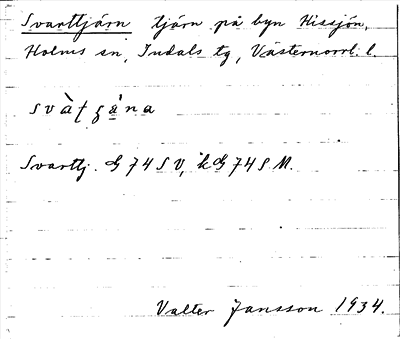 Svarttjärn tjärn på byn Hissjön,
Holms sn, Indals tg, Västernorrl. l.
Svarttj. G 74 S V, kG 74 S M.
Valter Jansson 1934.